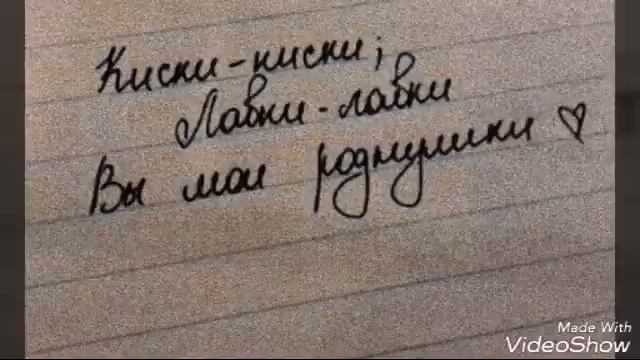 Киски-киски;
Лавки-лавки
Вы мои роднулики ♡
Made With
VideoShow